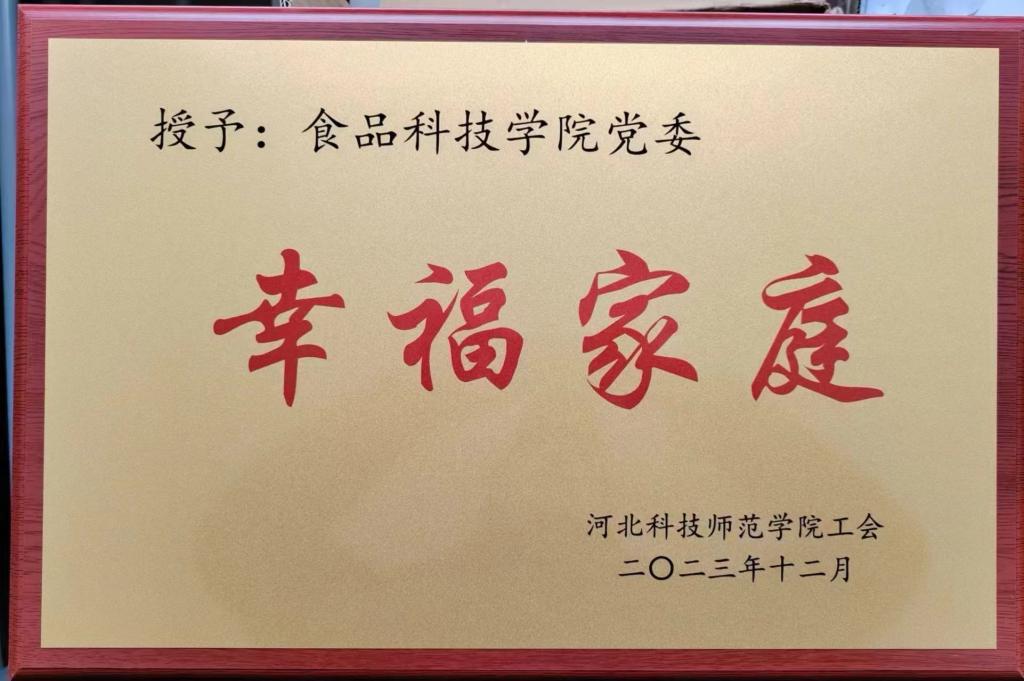 授予：食品科技学院党委
幸福家庭
河北科技师范学院工会
二〇二三年十二月